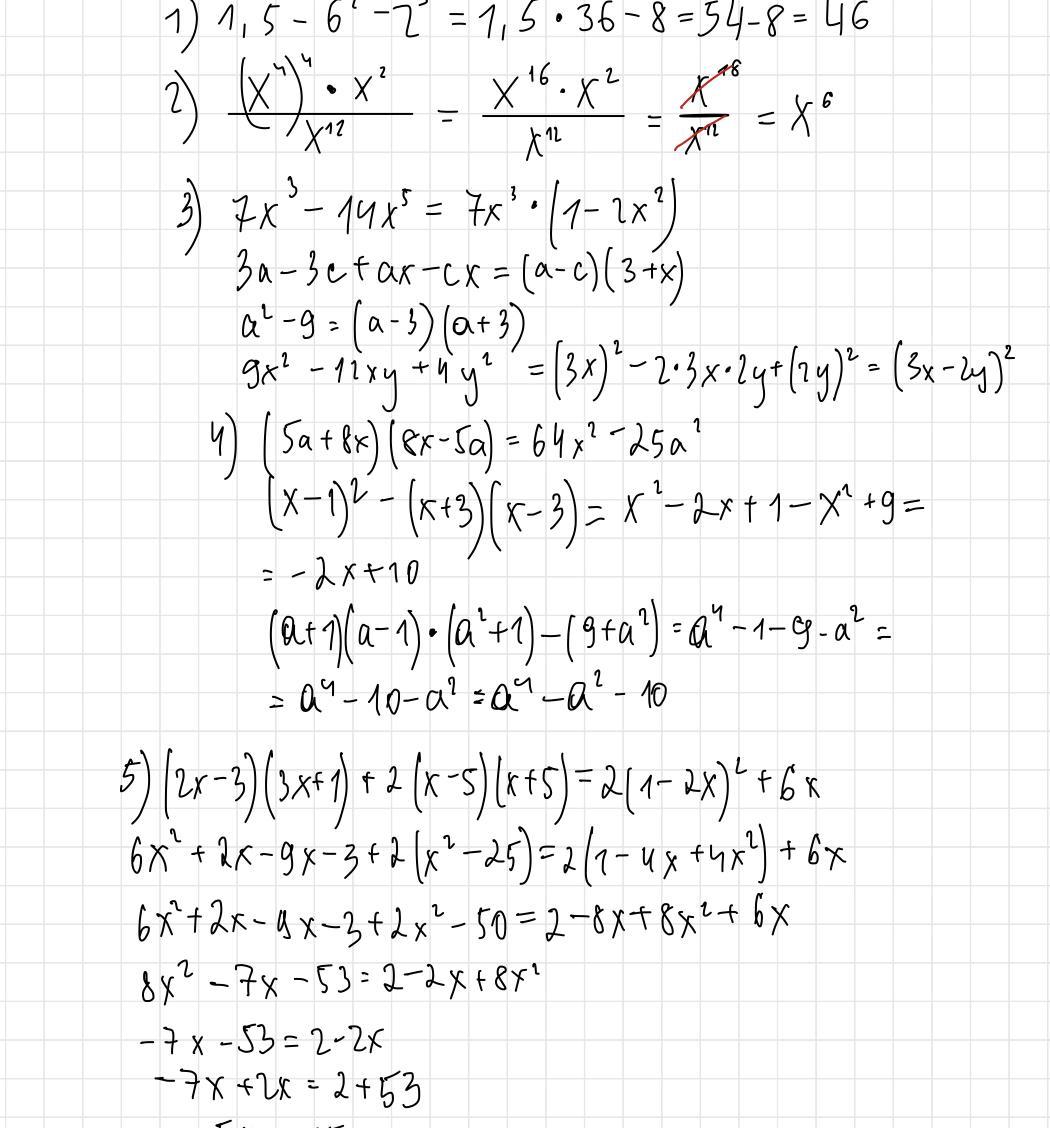 1) 1,5 - 6² - 2³ = 1,5 · 36 - 8 = 54 - 8 = 46
2) (x⁴)⁴ · x² / x¹² = x¹⁶ · x² / x¹² = x¹⁸ / x¹² = x⁶
3) 7x³ - 14x⁵ = 7x³ · (1 - 2x²)
3a - 3c + ax - cx = (a - c)(3 + x)
a² - 9 = (a - 3)(a + 3)
9x² - 12xy + 4y² = (3x)² - 2·3x·2y + (2y)² = (3x - 2y)²
4) (5a + 8x)(8x - 5a) = 64x² - 25a²
(x - 1)² - (x + 3)(x - 3) = x² - 2x + 1 - x² + 9 =
= -2x + 10
(a + 1)(a - 1) · (a² + 1) - (9 + a²) = a⁴ - 1 - 9 - a² =
= a⁴ - 10 - a² = a⁴ - a² - 10
5) (2x - 3)(3x + 1) + 2(x - 5)(x + 5) = 2(1 - 2x)² + 6x
6x² + 2x - 9x - 3 + 2(x² - 25) = 2(1 - 4x + 4x²) + 6x
6x² + 2x - 9x - 3 + 2x² - 50 = 2 - 8x + 8x² + 6x
8x² - 7x - 53 = 2 - 2x + 8x²
-7x - 53 = 2 - 2x
-7x + 2x = 2 + 53